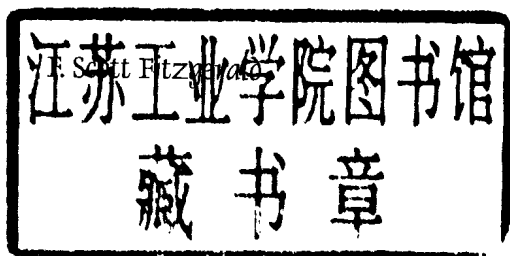 F. Scott Fitzgerald
江苏工业学院图书馆
藏书章